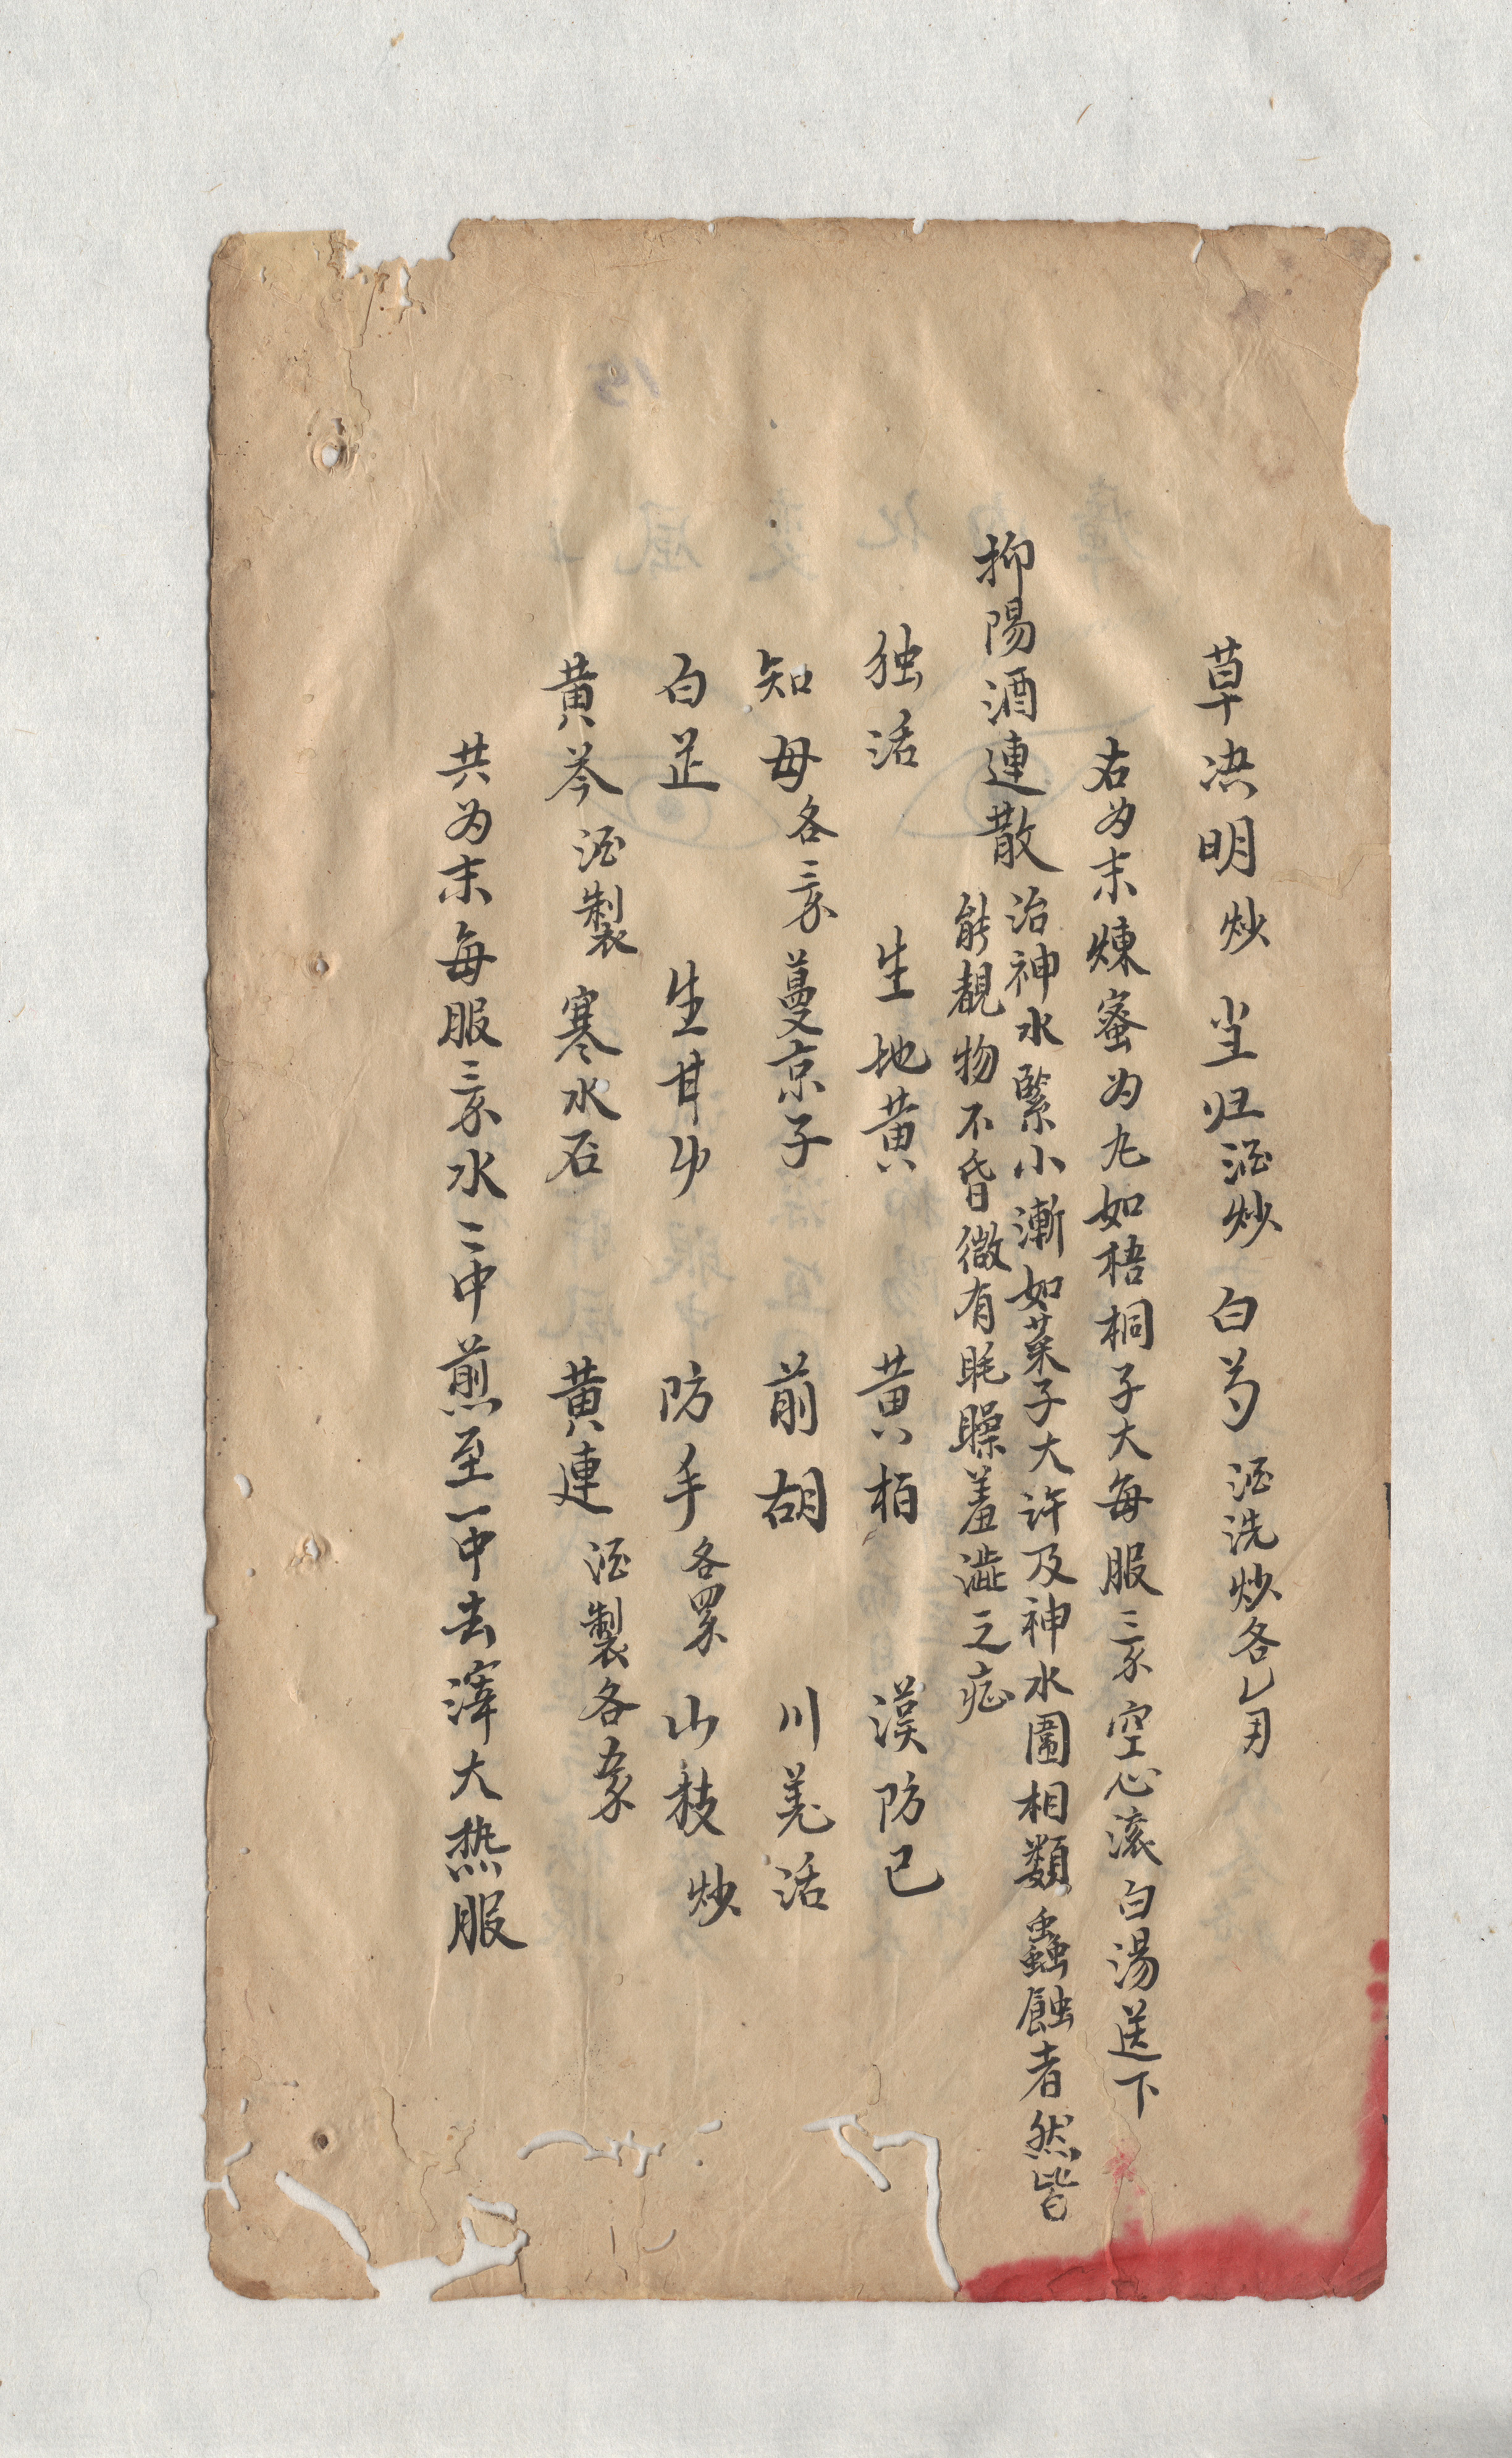 草决明炒 当归酒炒 白芍酒洗炒各乚
右为末煉蜜为丸如梧桐子大每服三录空心滚白湯送下
抑陽酒連散 治神水緊小漸如菜子大许及神水圍相類蟲蝕者然皆
能覩物不昏微有眊矂羞澁之症
独活 生地黄 黄栢 漢防已
知母各三录 蔓京子 前胡 川羌活
白芷 生甘 防手各 山枝炒
黄芩酒製 寒水石 黄連酒製各录
共为末每服三录水二中煎至一中去滓大热服